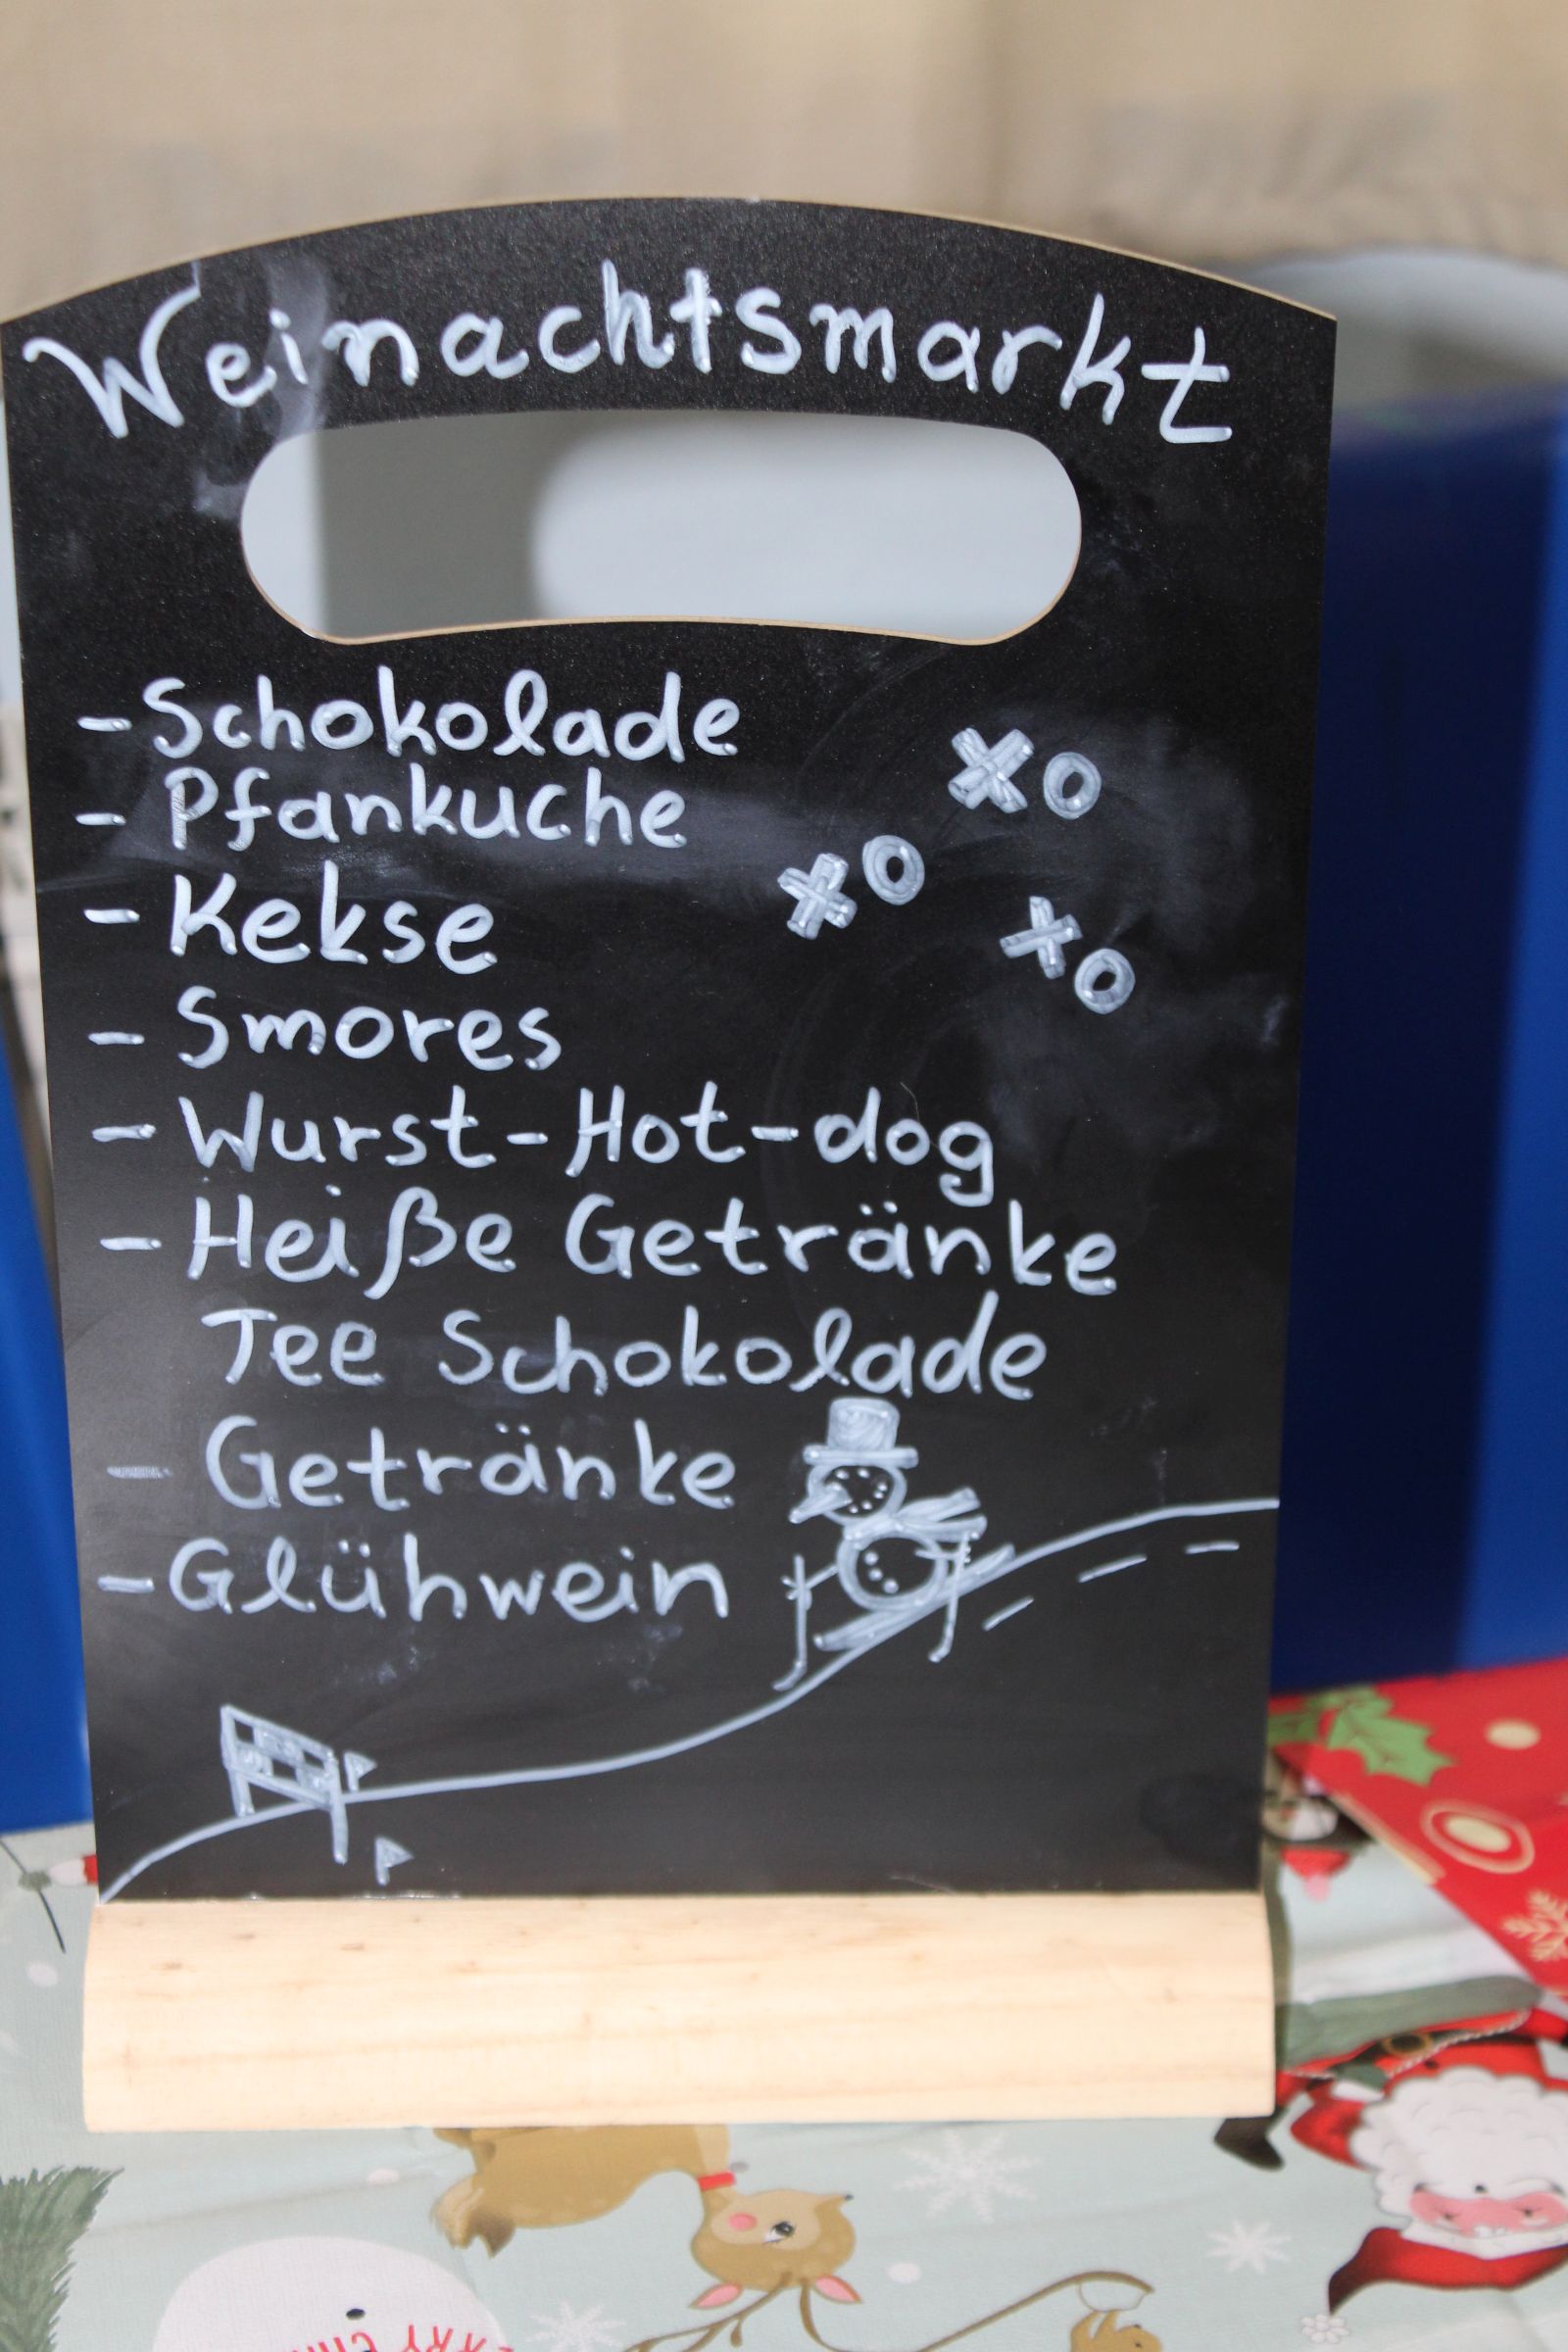 Weinachtsmarkt
- Schokolade
- Pfankuche
- Kekse
- Smores
- Wurst-Hot-dog
- Heiße Getränke
Tee Schokolade
- Getränke
- Glühwein
XO
XO
XO